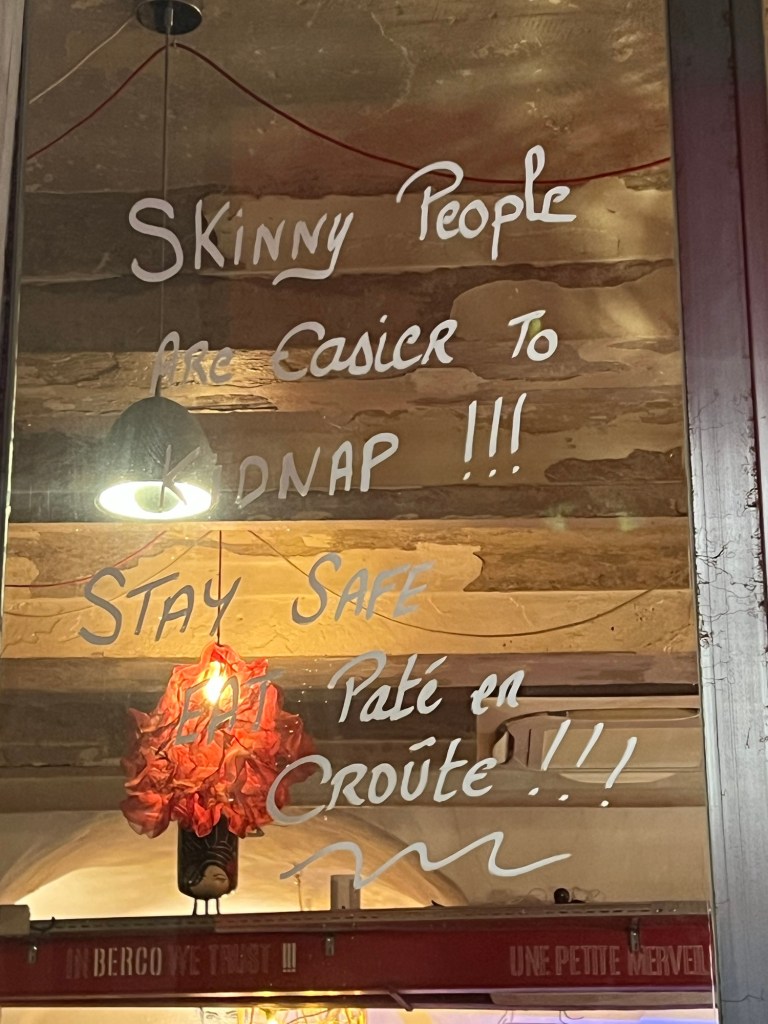 Skinny People
Are Easier To
Kidnap !!!
Stay Safe
Eat Paté en
Croûte !!!
IN BERCO WE TRUST !!!
UNE PETITE MERVEIL